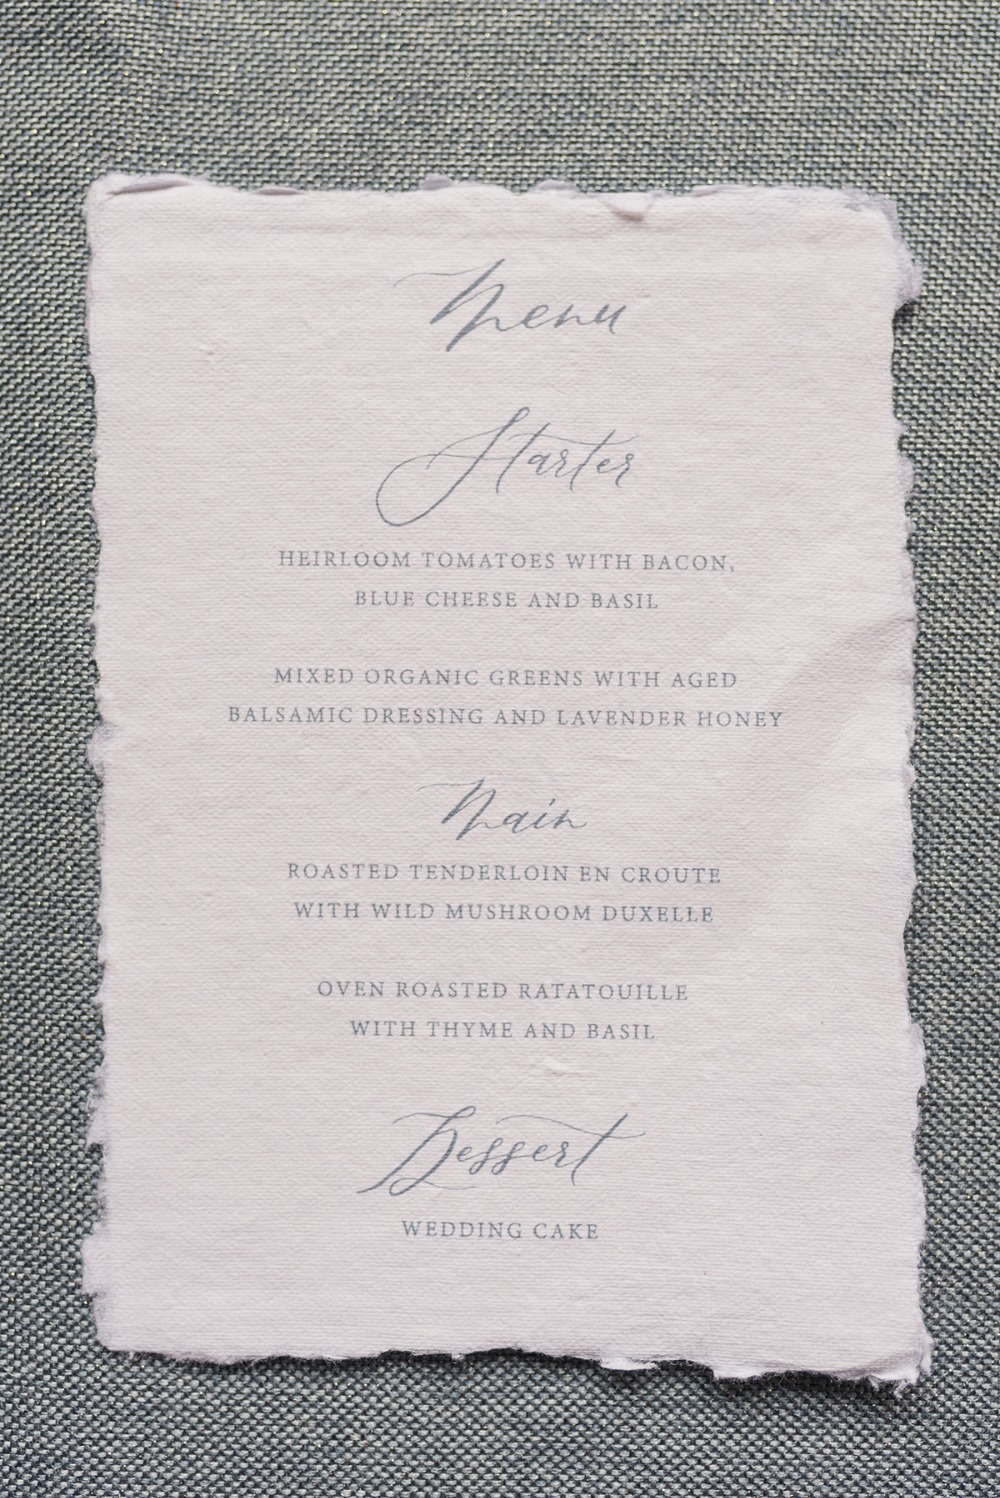 Menu
Starter
HEIRLOOM TOMATOES WITH BACON,
BLUE CHEESE AND BASIL
MIXED ORGANIC GREENS WITH AGED
BALSAMIC DRESSING AND LAVENDER HONEY
Main
ROASTED TENDERLOIN EN CROUTE
WITH WILD MUSHROOM DUXELLE
OVEN ROASTED RATATOUILLE
WITH THYME AND BASIL
Dessert
WEDDING CAKE